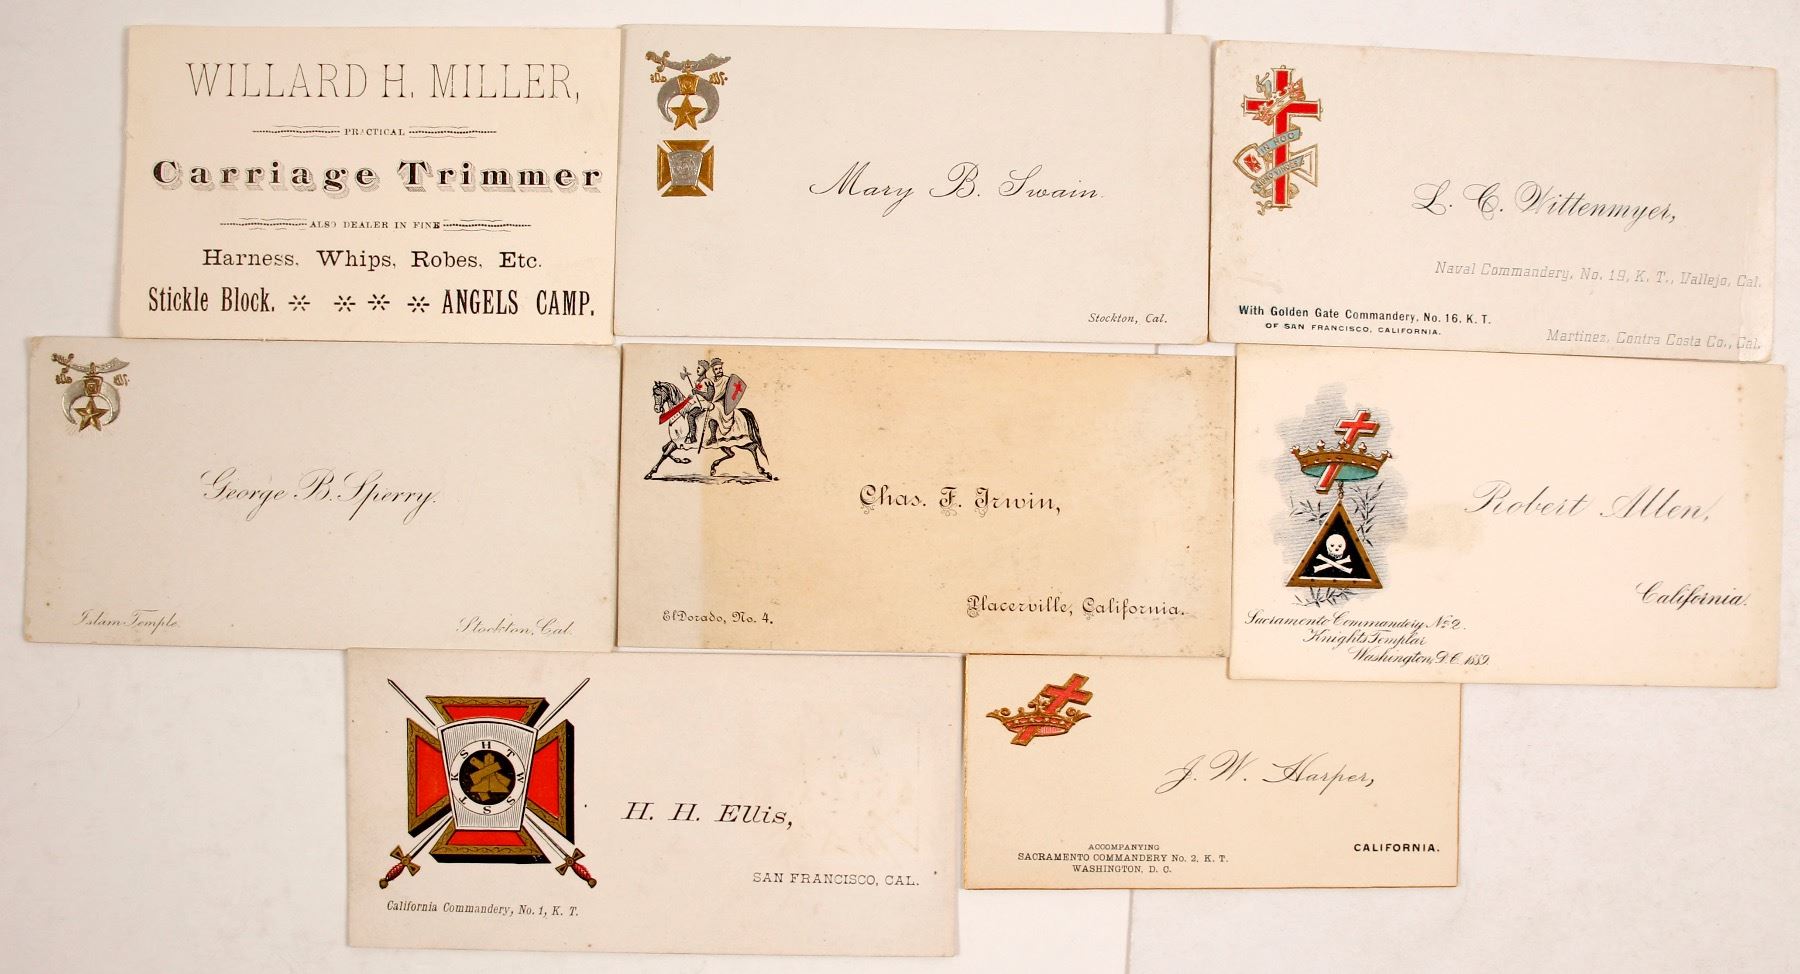 WILLARD H. MILLER,
PRACTICAL
Carriage Trimmer
ALSO DEALER IN FINE
Harness, Whips, Robes, Etc.
Stickle Block. ANGELS CAMP.
Mary B. Swain.
Stockton, Cal.
IN HOC
SIGNO VINCES
L. C. Wittenmyer,
Naval Commandery, No. 19, K. T., Vallejo, Cal.
With Golden Gate Commandery, No. 16, K. T.
OF SAN FRANCISCO, CALIFORNIA.
Martinez, Contra Costa Co., Cal.
George B. Sperry.
Islam Temple.
Stockton, Cal.
Chas. F. Irwin,
ElDorado, No. 4.
Placerville, California.
Robert Allen,
California.
Sacramento Commandery No. 2.
Knights Templar
Washington, D.C. 1889.
H T W S S T K S
H. H. Ellis,
SAN FRANCISCO, CAL.
California Commandery, No. 1, K. T.
J. W. Harper,
ACCOMPANYING
SACRAMENTO COMMANDERY No. 2, K. T.
WASHINGTON, D. C.
CALIFORNIA.